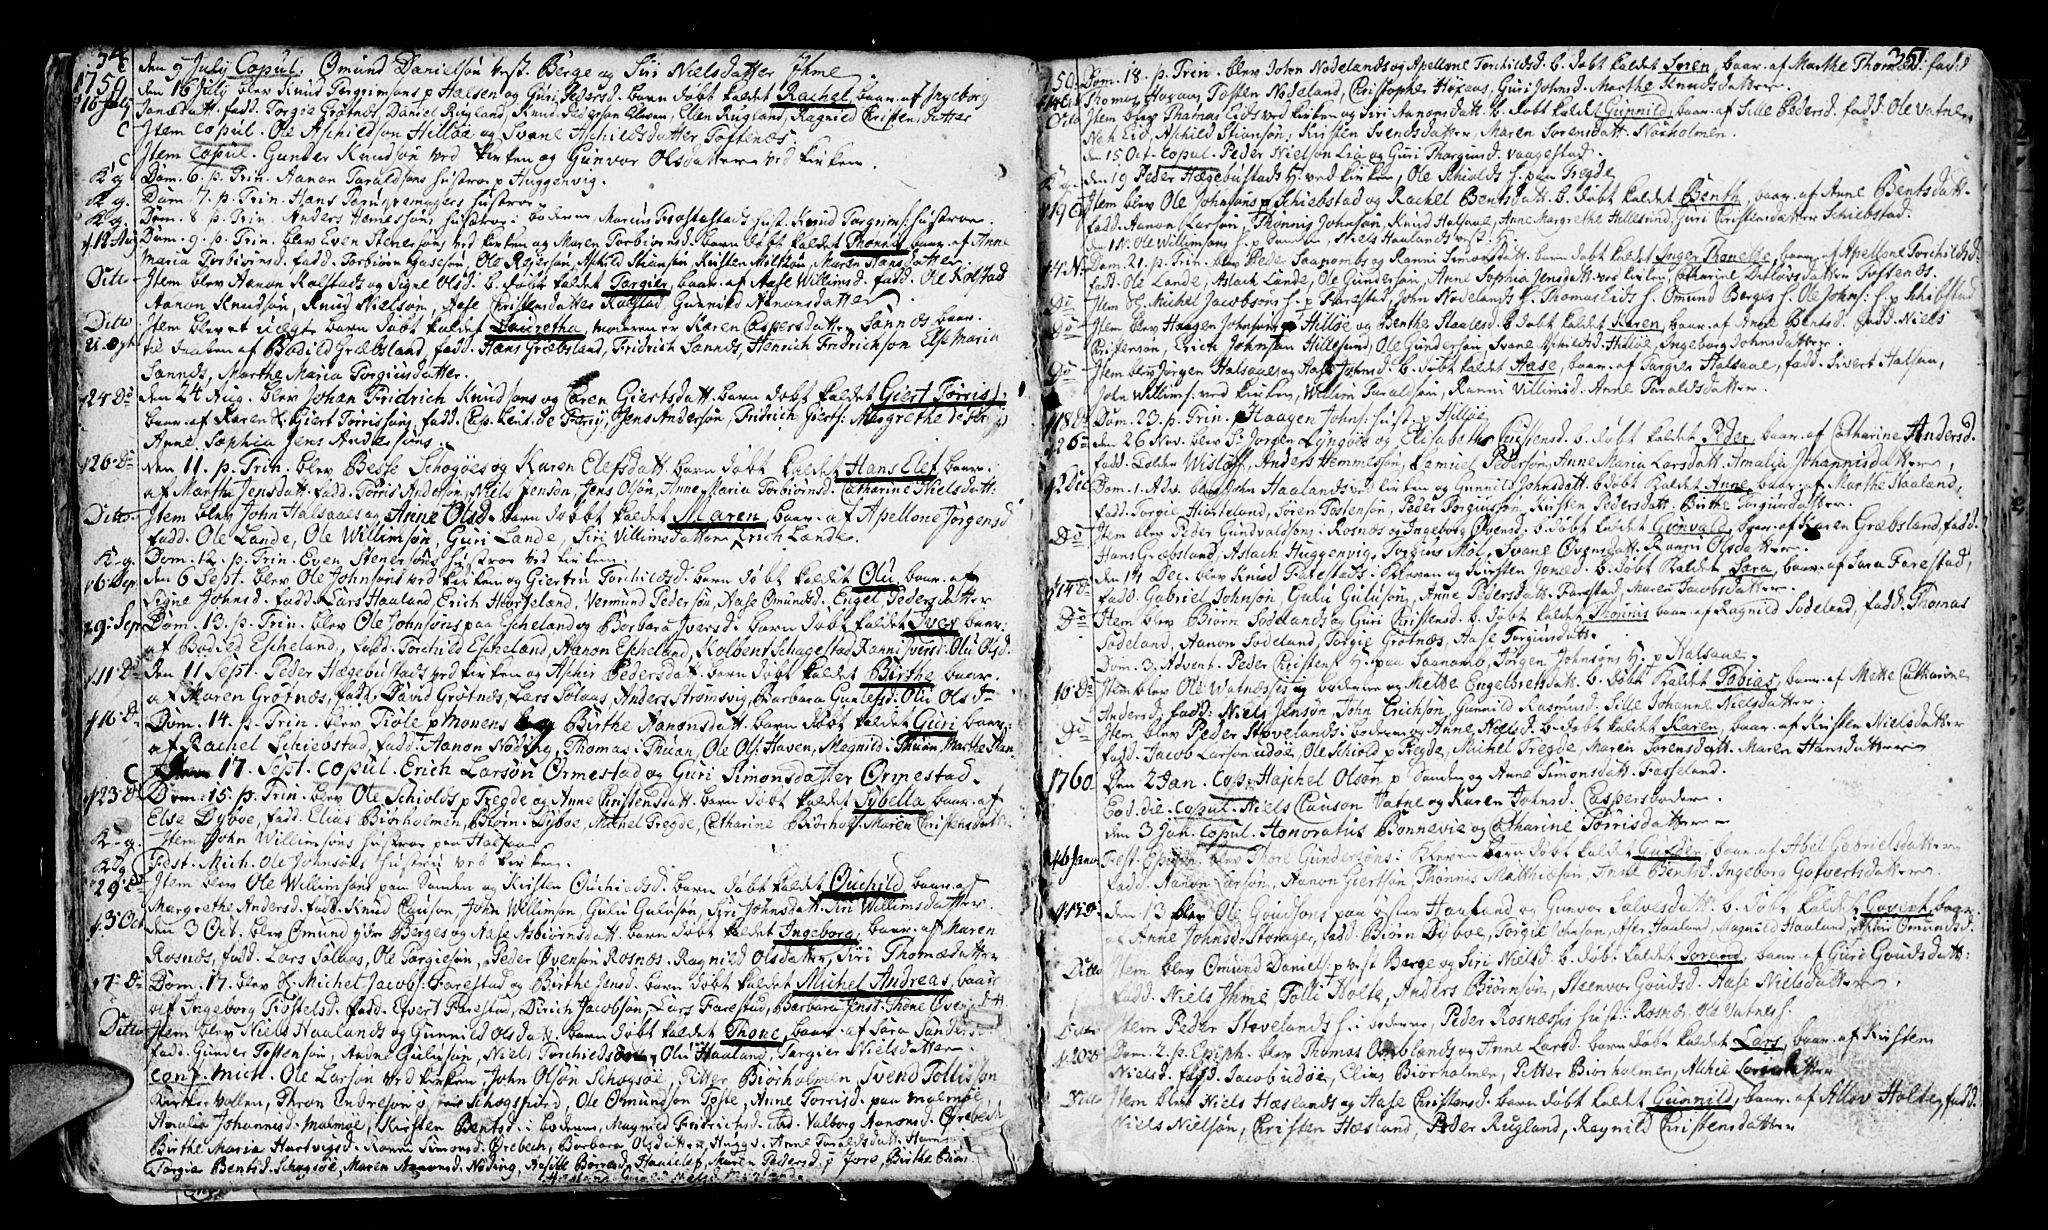 34
1759
den 9 July Copul. Omund Danielsön vest Berge og Siri Nielsdatter Ihme
16 July den 16 July blev Knud Torgrimsons p Halsen og Guri Pedersd. barn döbt kaldet Rachel, baar. af Ingeborg
fadd. Torgie Grötnes, Daniel Rugland, Knud Pedersön Ellen Rugland, Ragnild Christensdatter
C Item Copul. Ole Aschildsön Hilloe og Svane Aschildsdatter Toftenæs.
C Item Copul. Gunder Knudsön ved kirken og Gunvor Olsdatter ved kirken.
K. g. Dom. 6. p. Trin. Aanon Taraldsöns hustroe p Huggenvig.
K. g. Dom. 7. p. Trin. Hans hustroe
K. g. Dom. 8 p. Trin. Anders Hemessöns hustroe i boderne, Knud Torgrims: hustroe
12 Aug Dom. 9. p. Trin. blev Even Stenersöns ved kirken og Maren Torbiörnsd. barn döbt kaldet Thonne, baar. af Anne
Maria Torbiörnsd. fadd. Torbiörn Ole Reiersön, Aschild Stiansön, Kirsten Maren Hansdatter.
Ditto Item blev Aanon Rolstads og Signe Olsd. b. döbt kaldet Torgier, baar. af Aase Willumsd. fadd. Ole Rolstad
Aanon Knudsön, Knud Nielsön, Aase Christensdatter Rolstad, Gunnild Aanonsdatter
Ditto Item blev et uægte barn döbt kaldet Lauretha, moderen er Karen Caspersdatter Sannds baar.
til daaben af Bodild Græbsland, fadd. Hans Græbsland, Fridrich Sannds, Henrich Fridrichsön Else Maria
Sannds, Marthe Maria Torgiusdatter.
24 Do den 24 Aug. blev Johan Fridrich Knudsöns og Caren Giertsdatt. barn döbt kaldet Giert Törris,
baar. af Karen Giert Törrissöns, fadd. de Ferry, Jens Andersön, Fridrich Gierts: Margrethe de Ferry
Anne Sophia Jens Andersöns.
26 Do den 11. p. Trin. blev Besse Schogöes og Karen Elefsdatt. barn döbt kaldet Hans Elef baar.
af Martha Jensdatt. fadd. Törris Andersön, Niels Jensön, Jens Olsön, Anne Maria Torbiörnsd. Catharine Nielsdatt:
Ditto Item blev John Halsaaes og Anne Olsd. barn döbt kaldet Maren baar. af Apellone Jörgensd.
fadd. Ole Lande, Ole Willimsön, Guri Lande, Siri Villimsdatter Erich Lande.
K. g. Dom. 12. p. Trin. Even Stenersöns hustroe ved kirken
6 Sep. den 6 Sept. blev Ole Johnsöns ved kirken og Giertru Torchildsd. barn döbt kaldet Olu, baar. af
Signe Johnsd. fadd. Lars Haaland, Erich Hiorteland, Vermund Pedersön, Aase Omundsd. Engel Pedersdatter
9: Sep Dom. 13. p. Trin. blev Ole Johnsöns paa Escheland og Berbara Iversd. barn döbt kaldet Iver, baar:
af Bodild Escheland, fadd. Torchild Escheland, Aanon Escheland, Kolbent Schagestad Ranni Iversd. Olu Olsd.
11 Do den 11 Sept. Peder Hægebustads ved kirken og Aschir Pedersdatt. barn döbt kaldet Birthe, baar.
af Maren Grötnæs, fadd. David Grötnæs, Lars Solaas, Anders Strömsvig, Barbara Gunlefsd. Olu Olsd
16 Do Dom. 14. p. Trin. blev Tiöle p Monens og Birthe Aanonsdatt. barn döbt kaldet Guri, baar:
af Rachel Schiebstad, fadd: Aanon Nöding, Thomas i Thuan, Ole Ols Haven, Magnild i Thuen Marthe
C 17. Sept. copul. Erich Larsön Ormestad og Guri Simonsdatter Ormestad.
23 Do Dom. 15. p. Trin. blev Ole Schiolds p Tregde og Anne Christensdatt. barn döbt kaldet Sybella baar. af
Else Dyboe, fadd. Elias Biörholmen, Biörn Dyboe, Michel Tregde, Catharine Biörholm Maren Christensdatter.
K. g. Item John Willimsöns hustroe paa Halsaa
K. g. Fest. Mich. Ole Johnsöns hustru ved kirken.
29 Do Item blev Ole Willimsöns paa Sanden og Kirsten Ouchildsd. barn döbt kaldet Ouchild baar. af
Margrethe Andersd. fadd. Knud Clausön, John Willimsön, Gulu Gulusön, Siri Johnsdatt. Siri Willimsdatter.
3 Oct. den 3 Oct. blev Omund ydre Berges og Aase Asbiörnsdatt. barn döbt kaldet Ingeborg, baar. af Maren
Rosnæs, fadd. Lars Solaas, Ole Torgiesön, Peder Ovensön Rosnæs. Ragnild Olsdatter, Siri Thomædatter
7 Do Dom. 17. blev S. Michel Jacobs: Farestad og Birthe Jensd. barn döbt kaldet Michel Andreas, baar.
af Ingeborg fadd. Evert Farestad, Dirich Jacobsön, Lars Farestad, Barbara Jensd. Thone
Ditto Item blev Niels Haalands og Gunnild Olsdatt. barn döbt kaldet Thone, baar. af Sara
fadd. Gunder Tostensön, Andre Gulusön, Niels Torchiedsön Olu Haaland, Torgier Nielsdatter.
Conf. Mich. Ole Larsön ved kirken, John Olsön Schogsöe, Pitter Biörholmen, Svend Tollissön
Vollen, Thron Endresön p Schogsfiord, Ole Omundsön Töse, Anne Törrisd. paa Malmöe,
Amalia Johannesd. Malmöe, Kirsten Bentsd. i boderne, Magnild Fridrichsd. Ibid. Valborg Aanonsd. Örebech
Birthe Maria Hartvigsd. Ranni Simonsd. Örebech, Barbara Olsdatter, Anne Taraldsdatt.
Torgie Bentsd. Schogsöe, Maren Aanonsd. Nöding, Maren Pedersd. p Jore, Birthe
351
Dom. 18. p. Trin. blev John Nodelands og Apellone Torchildsd. b. döbt kaldet Sören, baar. af Marthe Thomæd. fadd
Thomas Höxaas, Tosten Nodeland, Christopher Höxaas, Guri Johnsd. Marthe Knudsdatter.
Item blev Thomas Eids ved kirken og Siri Aanonsdatt. b. döbt kaldet Gunnild, baar. af Sille Pedersd. fadd. Ole Vatne,
Neh Eid, Aschild Stiansön, Kirsten Svendsdatter, Maren Sörensdatt. Noxholmen.
den 15 Oct. Copul. Peder Nielsön Lia og Guri Thorgiusd. Vaagestad.
K. g. den 19 Peder Hægebustads H. ved kirken, Ole Schiolds h. paa Tregde,
19 Item blev Ole Johnsöns p Schiebstad og Rachel Bentsdatt. b. döbt kaldet Benth, baar. af Anne Bentsdatt.
fadd. Aanon Larsön, Thönnis Johnsön, Knud Halsaae, Anne Margrethe Hillesund, Guri Christensdatter Schiebstad.
den 1 N. Ole Willimsöns h. p Sanden, Niels Haalands
4. N. Dom. 21. p. Trin. blev Peder Saanombs og Ranni Simonsdatt. barn döbt kaldet Inger Thonette, baar. af Apellone Torchildsd.
fadd. Ole Lande, Aslach Lande, Ole Gundersön, Anne Sophia Jensdatt. ved kirken, Catharine Detlofsdatter Toftenæs.
Do Item S. Michel Jacobsöns h. p Farestad, John Nodelands h. Thomas Eids h. Omund Berges h. Ole Johns: h. p Schibstad
Do Item blev Haagen Johnsöns p Hilloe og Benthe Staalesd. b. döbt kaldet Karen, baar. af Anne Bentsd. fadd. Niels
Christensön, Erich Johnsön Hillesund, Ole Gundersön, Svane Aschildsd. Hilloe, Ingeborg Johnsdatter.
Do Item blev Jörgen Halsaaes og Aase Johnsd. b. döbt kaldet Aase, baar. af Torgier Halsaae, fadd. Sivert Halsaae,
John Willums: ved kirken, Willum Taraldsön, Ranni Villimsd. Anne Taraldsdatter.
18 Do Dom. 23. p. Trin. Haagen Johns: hust: p Hilloe,
26 den 26 Nov. blev Sr. Jörgen Lyngöes og Elisabeth Christensd. b. döbt kaldet Peder, baar. af Catharine Andersd.
fadd. Wislöff, Anders Hemmesön, Samuel Pedersön, Anne Maria Larsdatt. Amalia Johannisdatter,
2 Dec Dom. 1. Adv. blev John Haalands ved kirken og Gunnild Johnsdatt. b. döbt kaldet Anne, baar. af Marthe Haaland,
fadd. Torgie Hiorteland, Sören Tostensön, Peder Torgiussön, Kirsten Pedersdatt. Birthe Torgiusdatter.
Do Item blev Peder Gundvaldsöns i Rosnæs og Ingeborg Ovensd. b. döbt kaldet Gunvald, baar. af Karen Græbsland, fadd.
Hans Græbsland, Aslach Huggenvig, Torgius Möl, Svane Ovensdatt. Ranni Olsdatter.
14 Do den 14 Dec. blev Knud Farestads i Kleven og Kirsten Jonæd. b. döbt kaldet Sara, baar. af Sara Farestad,
fadd. Gabriel Johnsön, Gulu Gulusön, Anne Pedersdatt. Farestad, Maren Jacobsdatter
Do Item blev Biörn Sodelands og Guri Christensd. b. döbt kaldet Thönnis baar. af Ragnild Sodeland, fadd. Thomas
Sodeland, Aanon Sodeland, Torgie Grötnæs, Aase Torgiusdatt.
Dom. 3. Advent. Peder Christens: H. paa Saanomb, Jörgen Johnsöns H. p Halsaae.
16 Do Item blev Ole Watnessis i boderne og Mette Engelbretsdatt. b. döbt kaldet Tobias, baar. af Mette Catharine
Andersd. fadd: Niels Jensön, John Erichsön, Gunnild Rasmusd. Sille Johanne Nielsdatter.
Do Item blev Peder Stovelands i boderne og Anne Nielsd. b. döbt kaldet Karen, baar. af Kirsten Nielsdatter
fadd. Jacob Larsön Udöe, Ole Schiold p Tregde, Michel Tregde, Maren Sörensdatt. Maren Hansdatter
1760 Den 2 Jan. Cop. Haschel Olsön p Sanden og Anne Simonsdatt. Fasseland.
Eod. die. copul. Niels Clauson Vatne og Karen Johnsd. Caspersboder
den 3 Jan. Copul. Honoratus Bonnevie og Catharine Törrisdatter
6 Janu. Fest. Epiph. blev Thore Gundersöns i Kleven barn döbt kaldet Gunder, baar. af Abel Gabrielsdatter
fadd. Aanon Larsön, Aanon Giertsön, Thönnis Matthiæsön, Anne Bentsd. Ingeborg Gotvertsdatter.
13 Do den 13 blev Ole Goudsöns paa öster Haaland og Gunvor Salvesdatt. b. döbt kaldet Govert, baar
af Anne Johnsd. Storager, fadd. Biörn Dyboe, Torgie Johnsön, Aser Haaland, Magnild Haaland, Omundsd.
Ditto Item blev Omund Daniels: p vest Berge og Siri Nielsd. b. döbt kaldet baar. af Guri Goudsdatt:
fadd. Niels Ihme Tolle Holte, Anders Biörnsön, Steenvor Goudsd. Aase Nielsdatter.
Item Peder Stovelands h. i boderne, Peder Rosnæssis hust: Rosnæs. Ole Vatnes h.
20 Dom. 2. p. Epiph. blev Thomas og Anne Larsd. barn döbt kaldet Lars, baar. af Kirsten
Nielsd. fadd. Jacob Udöe, Elias Biörholmen, Pitter Biörholmen,
Ditto Item blev Niels Hæslands og Aase Christensd. barn döbt kaldet Gunnild, baar. af Holte, fadd.
Niels Nielsön, Christen Hæsland, Peder Rugland, Ragnild Christensdatter